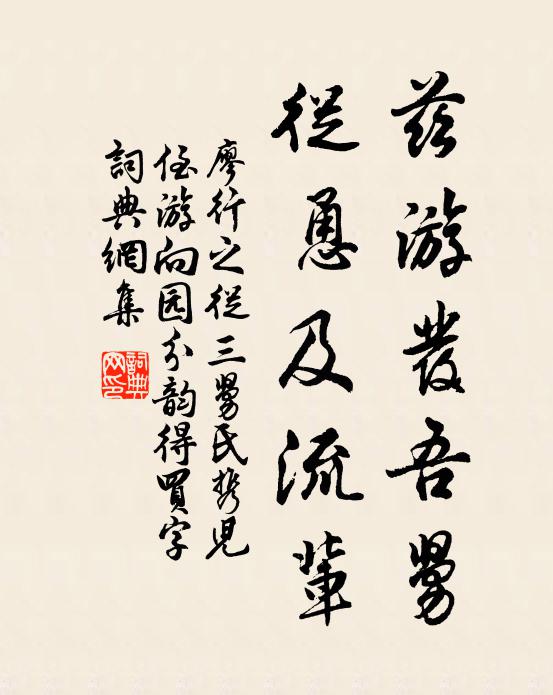 茲游發吾舅
從恿及流輩
廖行之從三舅氏携児
侄游向园分韵得買字
詞典網集
詞典
网印